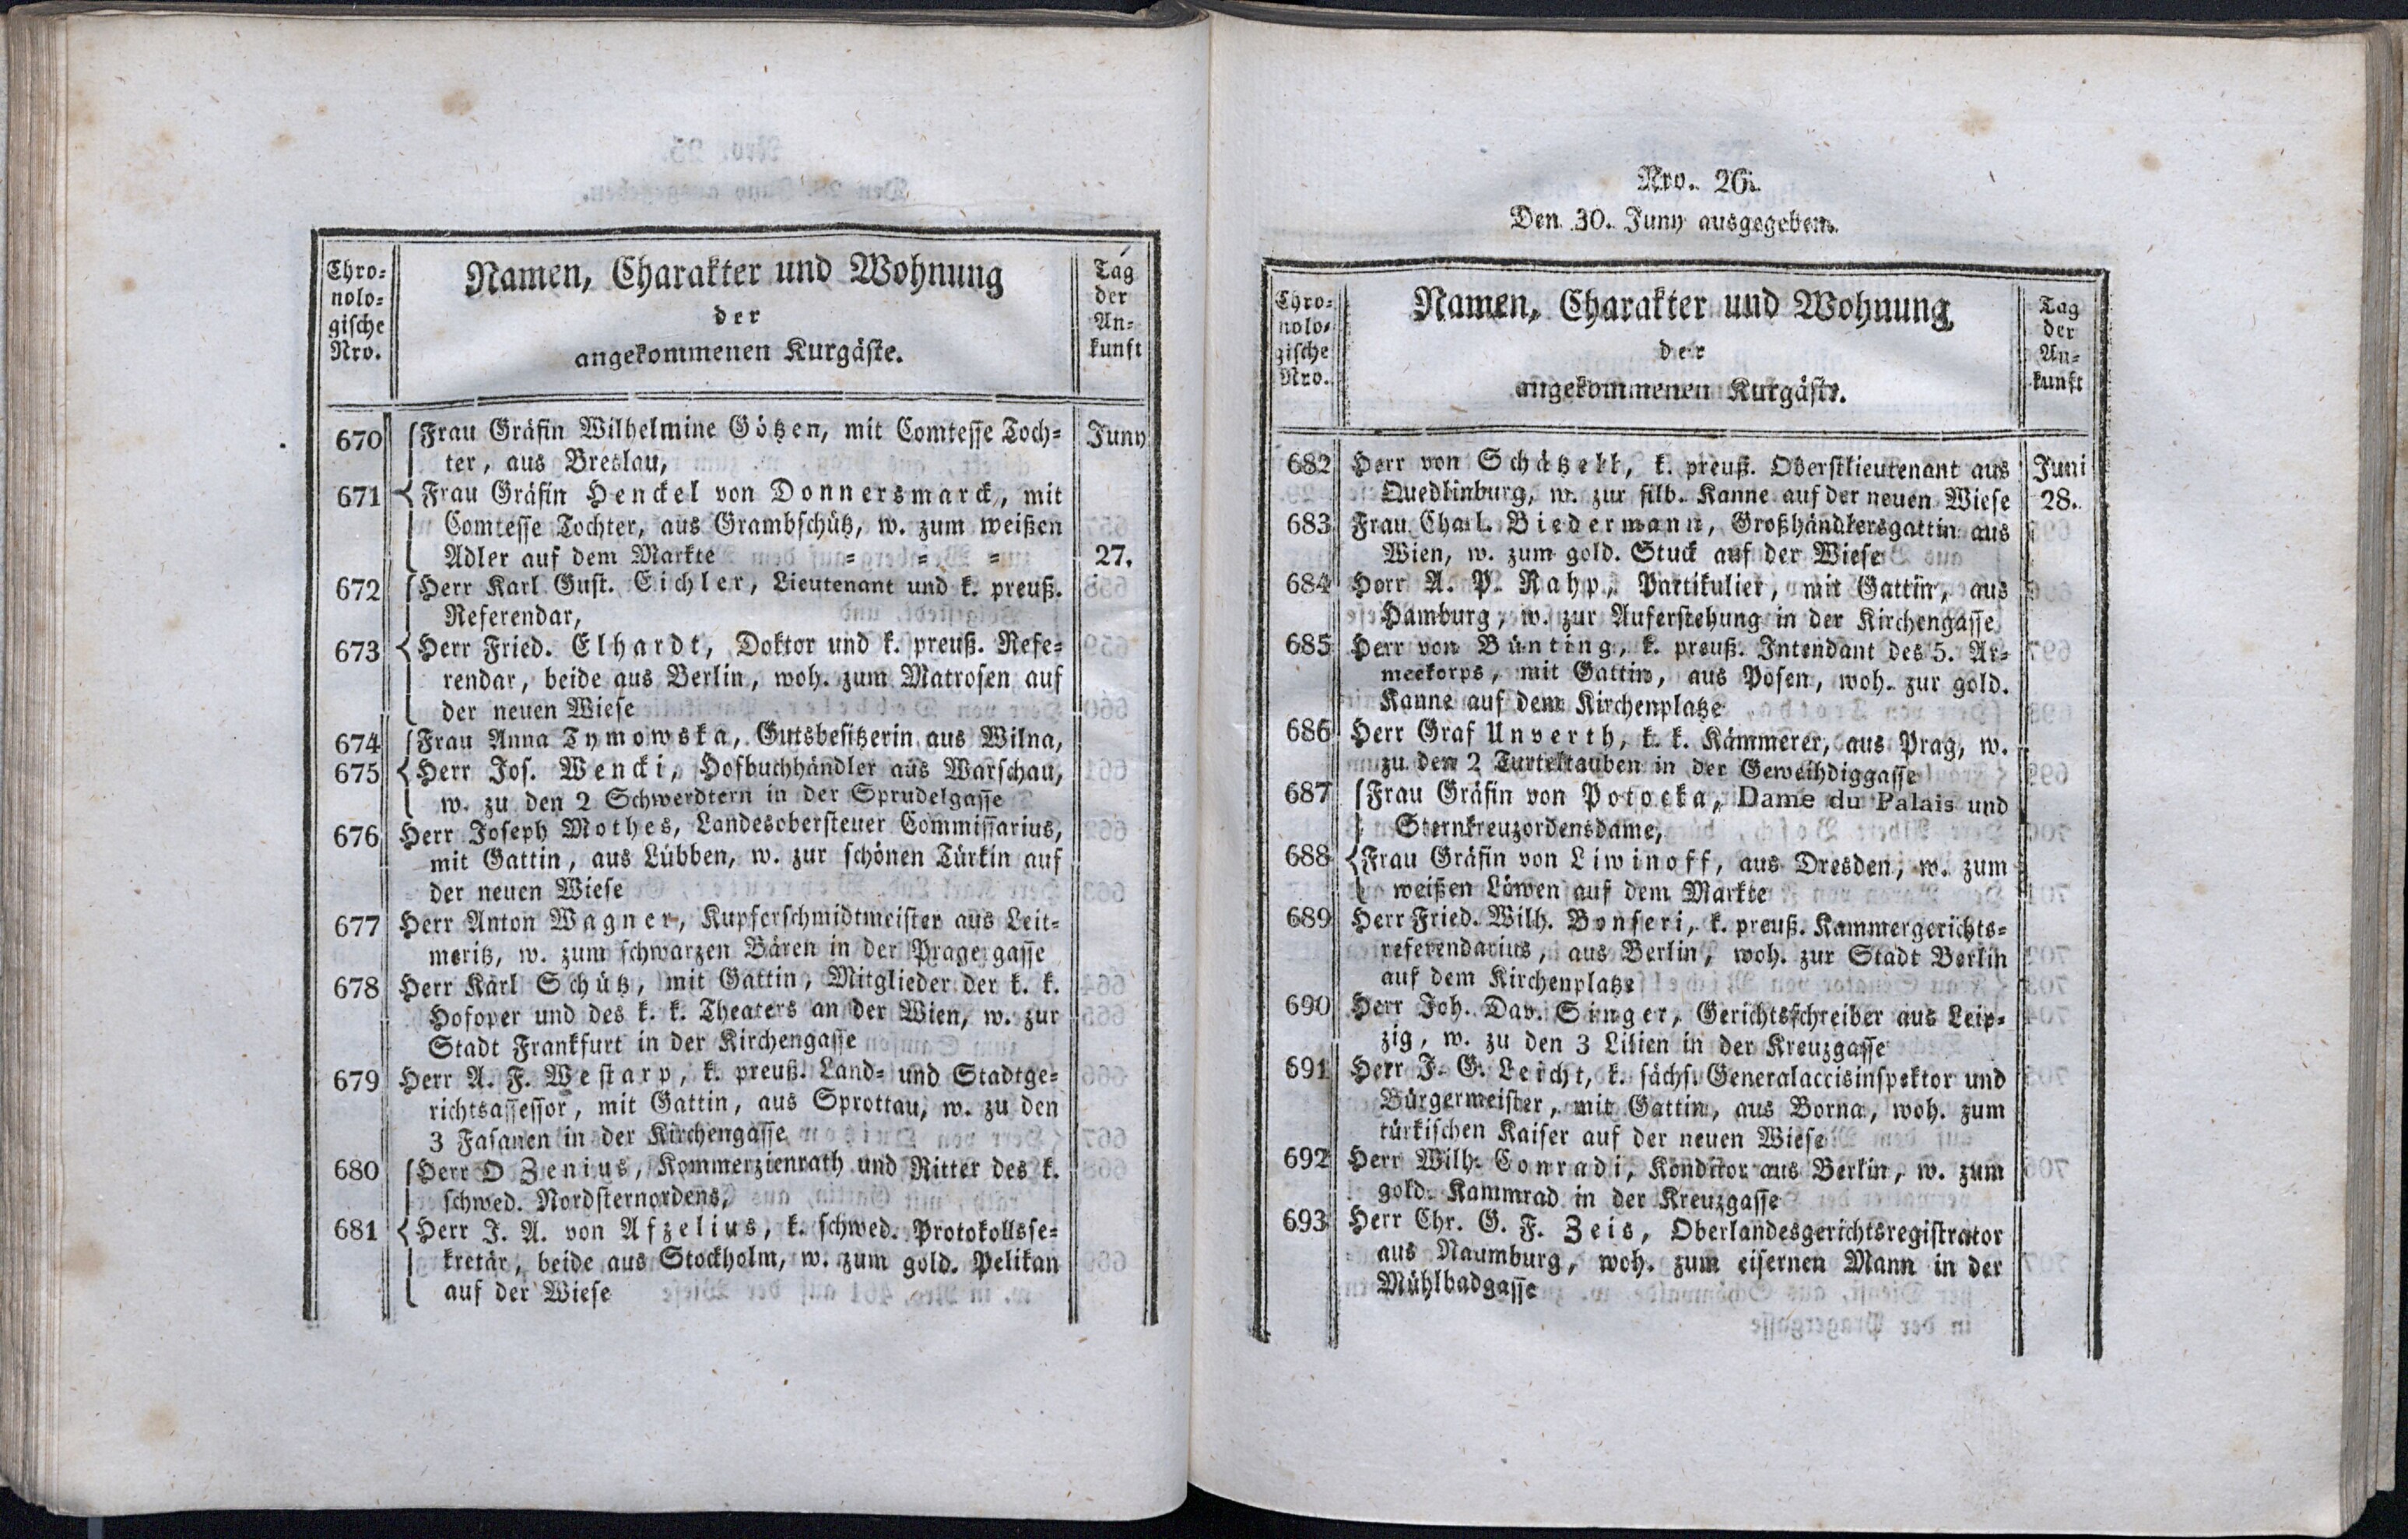 Chro-
nolo-
gische
Nro.
Namen, Charakter und Wohnung
der
angekommenen Kurgäste.
Tag
der
An-
kunft
670 Frau Gräfin Wilhelmine Götzen, mit Comtesse Toch- Juny
ter, aus Breslau,
671 Frau Gräfin Henckel von Donnersmarck, mit
Comtesse Tochter, aus Grambschütz, w. zum weißen
Adler auf dem Markte = = = 27.
672 Herr Karl Gust. Eichler, Lieutenant und k. preuß.
Referendar,
673 Herr Fried. Elhardt, Doktor und k. preuß. Refe-
rendar, beide aus Berlin, woh. zum Matrosen auf
der neuen Wiese
674 Frau Anna Tymowska, Gutsbesitzerin aus Wilna,
675 Herr Jos. Wencki, Hofbuchhändler aus Warschau,
w. zu den 2 Schwerdtern in der Sprudelgasse
676 Herr Joseph Mothes, Landesobersteuer Commissarius,
mit Gattin, aus Lübben, w. zur schönen Türkin auf
der neuen Wiese
677 Herr Anton Wagner, Kupferschmidtmeister aus Leit-
meritz, w. zum schwarzen Bären in der Pragergasse
678 Herr Karl Schütz, mit Gattin, Mitglieder der k. k.
Hofoper und des k. k. Theaters an der Wien, w. zur
Stadt Frankfurt in der Kirchengasse
679 Herr A. F. Westarp, k. preuß. Land- und Stadtge-
richtsassessor, mit Gattin, aus Sprottau, w. zu den
3 Fasanen in der Kirchengasse
680 Herr O Zenius, Kommerzienrath und Ritter des k.
schwed. Nordsternordens,
681 Herr J. A. von Afzelius, k. schwed. Protokollsse-
kretär, beide aus Stockholm, w. zum gold. Pelikan
auf der Wiese
Nro. 26.
Den 30. Juny ausgegeben.
Chro-
nolo-
gische
Nro.
Namen, Charakter und Wohnung
der
angekommenen Kurgäste.
Tag
der
An-
kunft
682 Herr von Schätzell, k. preuß. Oberstlieutenant aus Juni
Quedlinburg, w. zur silb. Kanne auf der neuen Wiese 28.
683 Frau Charl. Biedermann, Großhändlersgattin aus
Wien, w. zum gold. Stuck auf der Wiese
684 Herr A. P. Rahp, Partikulier, mit Gattin, aus
Hamburg, w. zur Auferstehung in der Kirchengasse
685 Herr von Bünting, k. preuß. Intendant des 5. Ar-
meekorps, mit Gattin, aus Posen, woh. zur gold.
Kanne auf dem Kirchenplatze
686 Herr Graf Unverth, k. k. Kämmerer, aus Prag, w.
zu den 2 Turteltauben in der Geweihdiggasse
687 Frau Gräfin von Potocka, Dame du Palais und
Sternkreuzordensdame,
688 Frau Gräfin von Liwinoff, aus Dresden, w. zum
weißen Löwen auf dem Markte
689 Herr Fried. Wilh. Bonseri, k. preuß. Kammergerichts-
referendarius, aus Berlin, woh. zur Stadt Berlin
auf dem Kirchenplatze
690 Herr Joh. Dav. Singer, Gerichtsschreiber aus Leip-
zig, w. zu den 3 Lilien in der Kreuzgasse
691 Herr J. G. Leicht, k. sächs. Generalaccisinspektor und
Bürgermeister, mit Gattin, aus Borna, woh. zum
türkischen Kaiser auf der neuen Wiese
692 Herr Wilh. Conradi, Konditor aus Berlin, w. zum
gold. Kammrad in der Kreuzgasse
693 Herr Chr. G. F. Zeis, Oberlandesgerichtsregistrator
aus Naumburg, woh. zum eisernen Mann in der
Mühlbadgasse